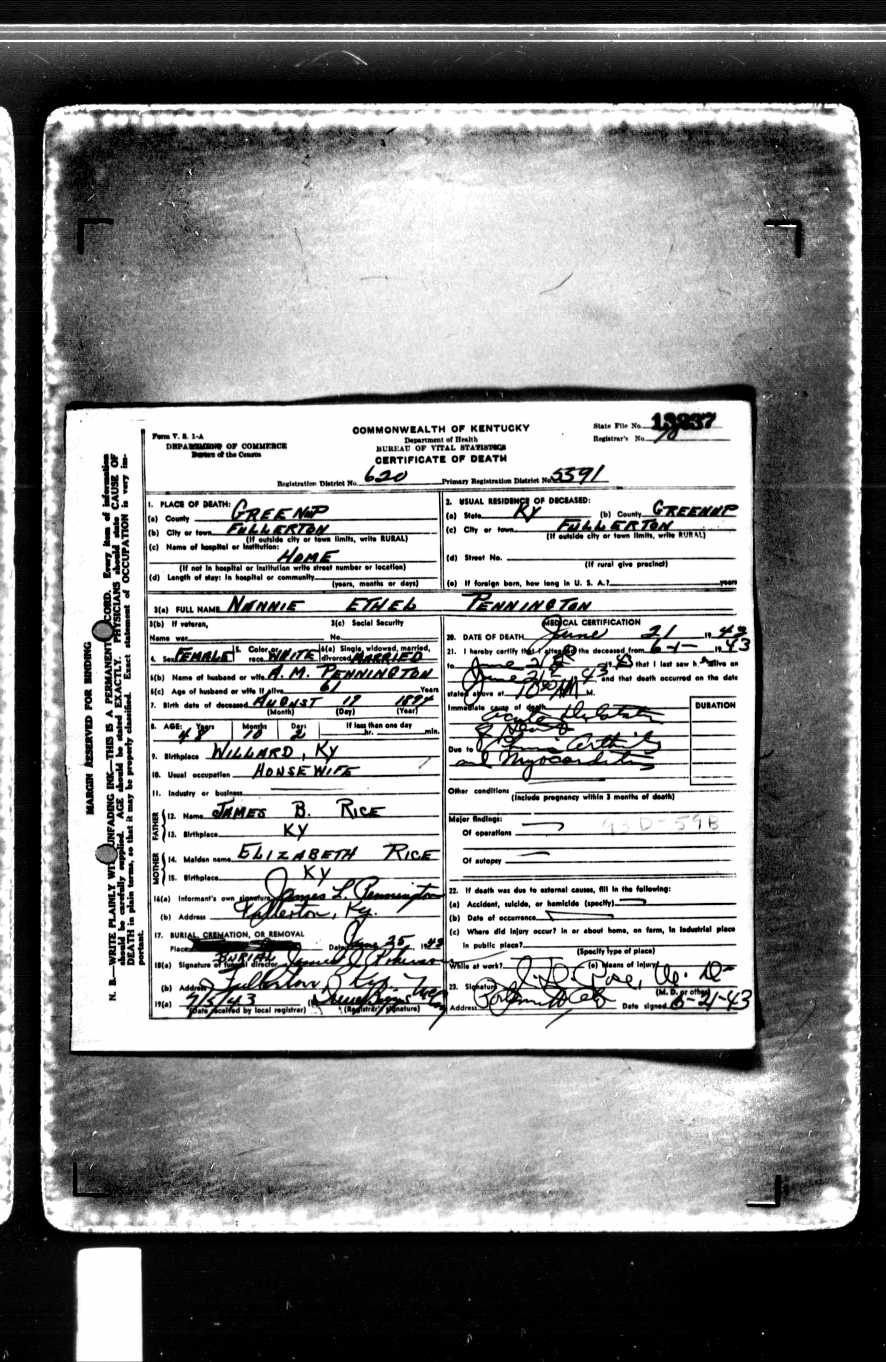 Form V. S. 1-A
DEPARTMENT OF COMMERCE
Bureau of the Census
COMMONWEALTH OF KENTUCKY
Department of Health
BUREAU OF VITAL STATISTICS
CERTIFICATE OF DEATH
State File No. 13237
Registrar's No.
Registration District No. 620 Primary Registration District No. 5391
MARGIN RESERVED FOR BINDING
N. B.—WRITE PLAINLY WITH UNFADING INK—THIS IS A PERMANENT RECORD. Every item of information
should be carefully supplied. AGE should be stated EXACTLY. PHYSICIANS should state CAUSE OF
DEATH in plain terms, so that it may be properly classified. Exact statement of OCCUPATION is very im-
portant.
1. PLACE OF DEATH:
(a) County GREENUP
(b) City or town FULLERTON
(If outside city or town limits, write RURAL)
(c) Name of hospital or institution:
HOME
(If not in hospital or institution write street number or location)
(d) Length of stay: In hospital or community
(years, months or days)
2. USUAL RESIDENCE OF DECEASED:
(a) State KY (b) County GREENUP
(c) City or town FULLERTON
(If outside city or town limits, write RURAL)
(d) Street No.
(If rural give precinct)
(e) If foreign born, how long in U. S. A.? years
3(a) FULL NAME NANNIE ETHEL PENNINGTON
3(b) If veteran,
Name war
3(c) Social Security
No.
4. Sex FEMALE 5. Color or race WHITE 6(a) Single, widowed, married, divorced MARRIED
6(b) Name of husband or wife A. M. PENNINGTON
6(c) Age of husband or wife if alive 61 Years
7. Birth date of deceased AUGUST 19 1894
(Month) (Day) (Year)
8. AGE: Years Months Days If less than one day
48 10 2 hr. min.
9. Birthplace WILLARD, KY
10. Usual occupation HOUSEWIFE
11. Industry or business
FATHER
12. Name JAMES B. RICE
13. Birthplace KY
MOTHER
14. Maiden name ELIZABETH RICE
15. Birthplace KY
16(a) Informant's own signature James L. Pennington
(b) Address Fullerton, Ky.
17. BURIAL, CREMATION, OR REMOVAL
Place Date June 25, 1943
BURIAL
18(a) Signature of funeral director James
(b) Address Fullerton Ky.
19(a) 7/5/43
(Date received by local registrar) (Registrar's signature)
MEDICAL CERTIFICATION
20. DATE OF DEATH June 21 1943
21. I hereby certify that I attended the deceased from 6-1- 1943
to June 21 that I last saw h alive on
June 21 43 and that death occurred on the date
stated above at 10 AM M.
Immediate cause of death DURATION
acute
of Heart
Due to Arthritis
and Myocarditis
Other conditions
(Include pregnancy within 3 months of death)
Major findings:
Of operations 93D-59B
Of autopsy
22. If death was due to external causes, fill in the following:
(a) Accident, suicide, or homicide (specify)
(b) Date of occurrence
(c) Where did injury occur? in or about home, on farm, in industrial place
in public place?
(Specify type of place)
While at work? (e) Means of injury
23. Signature M. D.
(M. D. or other)
Address Date signed 6-21-43